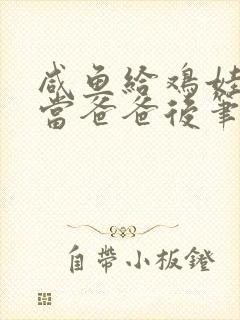 咸鱼给鸡娃
当爸爸後筆
自帶小板鐙